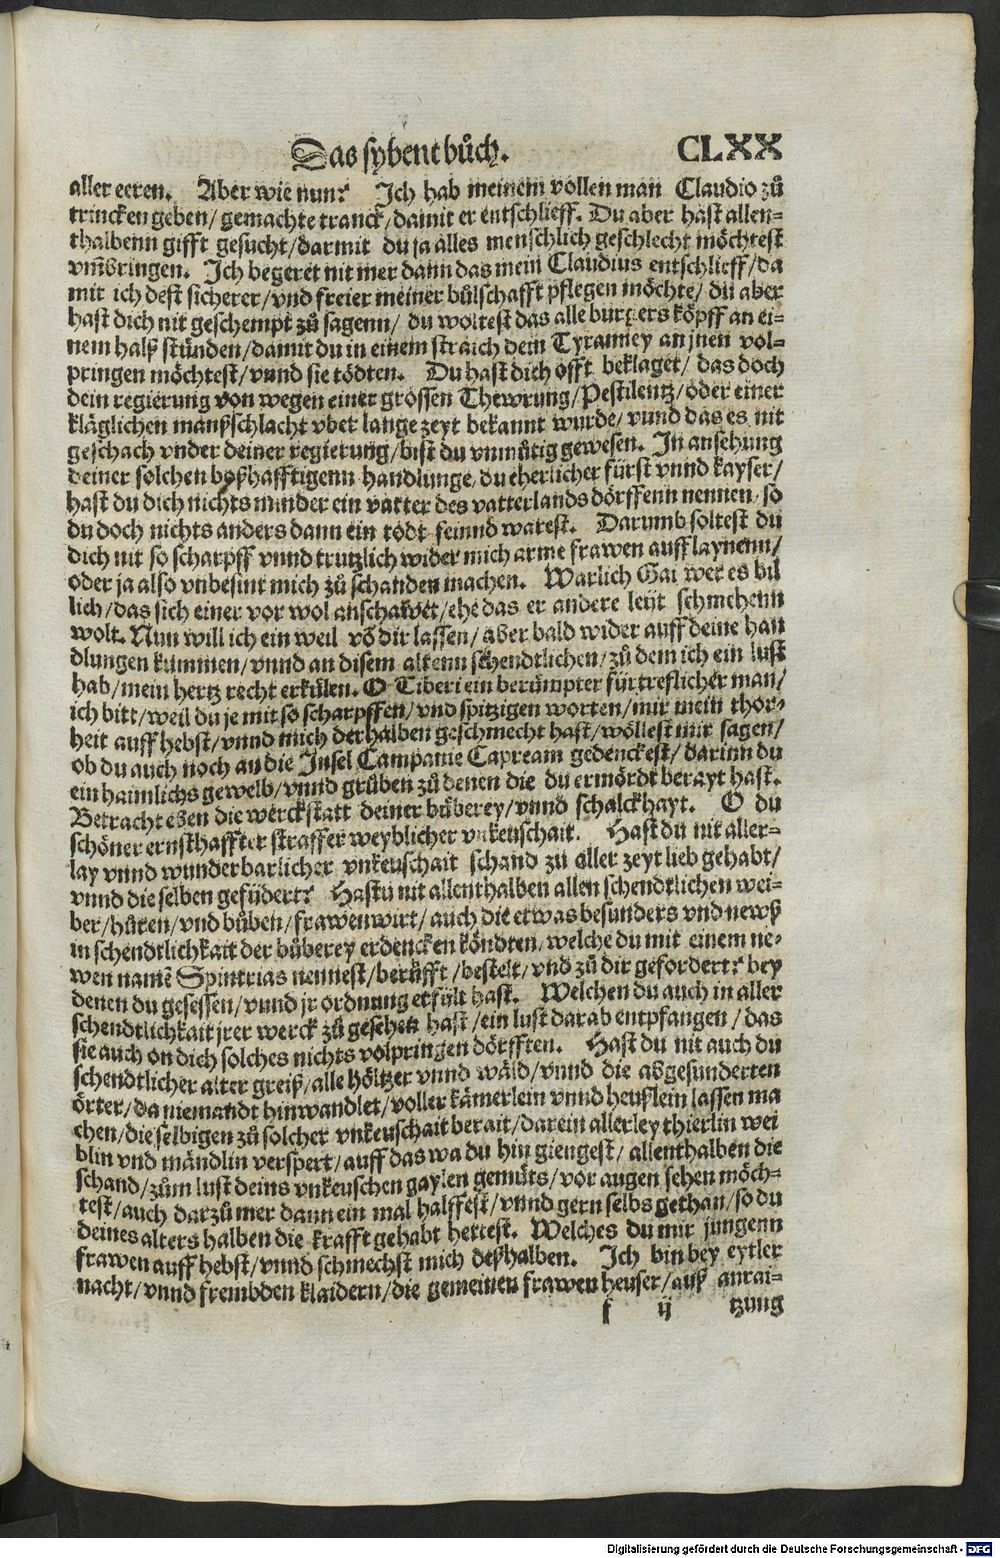 Das sybent bůch. CLXX
aller eeren. Aber wie nun? Ich hab meinem vollen man Claudio zů
trincken geben/ gemachte tranck/ damit er entschlieff. Du aber hast allen-
thalbenn gifft gesucht/ darmit du ja alles menschlich geschlecht möchtest
vm̃bringen. Ich begeret nit mer dann das mein Claudius entschlieff/ da
mit ich dest sicherer/ vnd freier meiner bůlschafft pflegen möchte/ du aber
hast dich nit geschempt zů sagenn/ du woltest das alle burgers köpff an ei-
nem halß stünden/ damit du in einem straich dein Tyranney an jnen vol-
pringen möchtest/ vnnd sie tödten. Du hast dich offt beklaget/ das doch
dein regierung von wegen einer grossen Thewrung/ Pestilentz/ oder einer
kläglichen manßschlacht vber lange zeyt bekannt wurde/ vnnd das es nit
geschach vnder deiner regierung/ bist du vnmůtig gewesen. In ansehung
deiner solchen boßhafftigenn handlunge/ du eherlicher fürst vnnd kayser/
hast du dich nichts minder ein vatter des vatterlands dörffenn nennen/ so
du doch nichts anders dann ein todt feinnd warest. Darumb soltest du
dich nit so scharpff vnnd trutzlich wider mich arme frawen aufflaynenn/
oder ja also vnbesint mich zů schanden machen. Warlich Gai wer es bil
lich/ das sich einer vor wol anschawet/ ehe das er andere leyt schmehenn
wolt. Nun will ich ein weil võ dir lassen/ aber bald wider auff deine han
dlungen kummen/ vnnd an disem altenn schendtlichen/ zů dem ich ein lust
hab/ mein hertz recht erkůlen. O Tiberi ein berümpter fürtreflicher man/
ich bitt/ weil du je mit so scharpffen/ vnd spitzigen worten/ mir mein thor-
heit auff hebst/ vnnd mich derhalben geschmecht hast/ wöllest mir sagen/
ob du auch noch an die Insel Campanie Capream gedenckest/ darinn du
ein haimlichs gewelb/ vnnd grůben zů denen die du ermördt berayt hast.
Betracht eben die werckstatt deiner bůberey/ vnnd schalckhayt. O du
schöner ernsthaffter straffer weyblicher vnkeuschait. Hast du nit aller-
lay vnnd wunderbarlicher vnkeuschait schand zu aller zeyt lieb gehabt/
vnnd die selben gefüdert? Hastu nit allenthalben allen schendtlichen wei-
ber/ hůren/ vnd bůben/ frawenwirt/ auch die etwas besunders vnd newß
in schendtlichkait der bůberey erdencken köndten/ welche du mit einem ne-
wen namẽ Spintrias nennest/ berůfft/ bestelt/ vnd zů dir gefordert? bey
denen du gesessen/ vnnd jr ordnung erfült hast. Welchen du auch in aller
schendtlichkait jrer werck zů gesehen hast/ ein lust darab entpfangen/ das
sie auch on dich solches nichts volpringen dörfften. Hast du nit auch du
schendtlicher alter greiß/ alle höltzer vnnd wäld/ vnnd die abgesunderten
örter/ da niemandt hinwandlet/ voller kämerlein vnnd heußlein lassen ma
chen/ die selbigen zů solcher vnkeuschait berait/ darein allerley thierlin wei
blin vnd mändlin verspert/ auff das wa du hin giengest/ allenthalben die
schand/ zům lust deins vnkeuschen gaylen gemůts/ vor augen sehen möch-
test/ auch darzů mer dann ein mal halffest/ vnnd gern selbs gethan/ so du
deines alters halben die krafft gehabt hettest. Welches du mir jungenn
frawen auff hebst/ vnnd schmechst mich deßhalben. Ich bin bey eytler
nacht/ vnnd frembden klaidern/ die gemeinen frawen heuser/ auß anrai-
f ij tzung
Digitalisierung gefördert durch die Deutsche Forschungsgemeinschaft - DFG